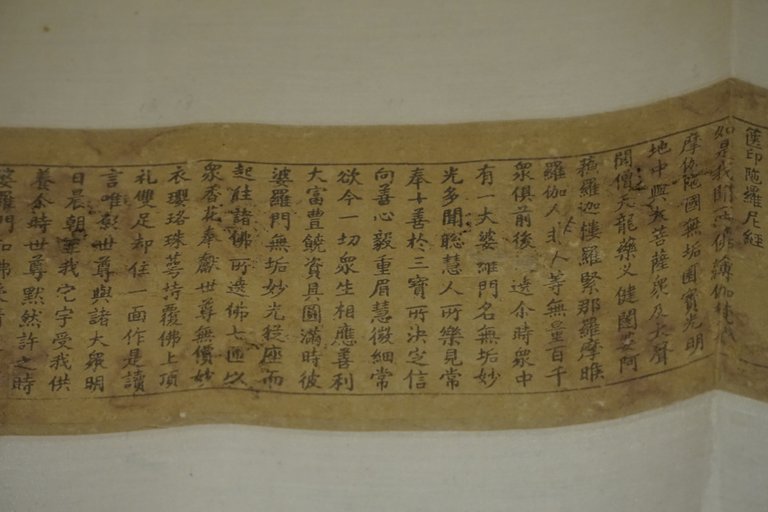 篋印陁羅尼經
如是我聞一時佛薄伽梵
摩伽陁國無垢園寳光明
地中與大菩薩衆及大聲
聞僧天龍藥叉健闥婆阿
蘓羅迦樓羅緊那羅摩睺
羅伽人非人等無量百千
衆俱前後遶尒時衆中
有一大婆羅門名無垢妙
光多聞聰慧人所樂見常
奉十善於三寳所決定信
向善心毅重眉慧微細常
欲令一切衆生相應善利
大富豊饒資具圓滿時彼
婆羅門無垢妙光從座而
起往諸佛所遶佛七迊以
衆香花奉獻世尊無價妙
衣瓔珞珠鬘持覆佛上頂
礼雙足却住一面作是讀
言唯願世尊與諸大衆明
日晨朝至我宅宇受我供
養尒時世尊默然許之時
婆羅門知佛